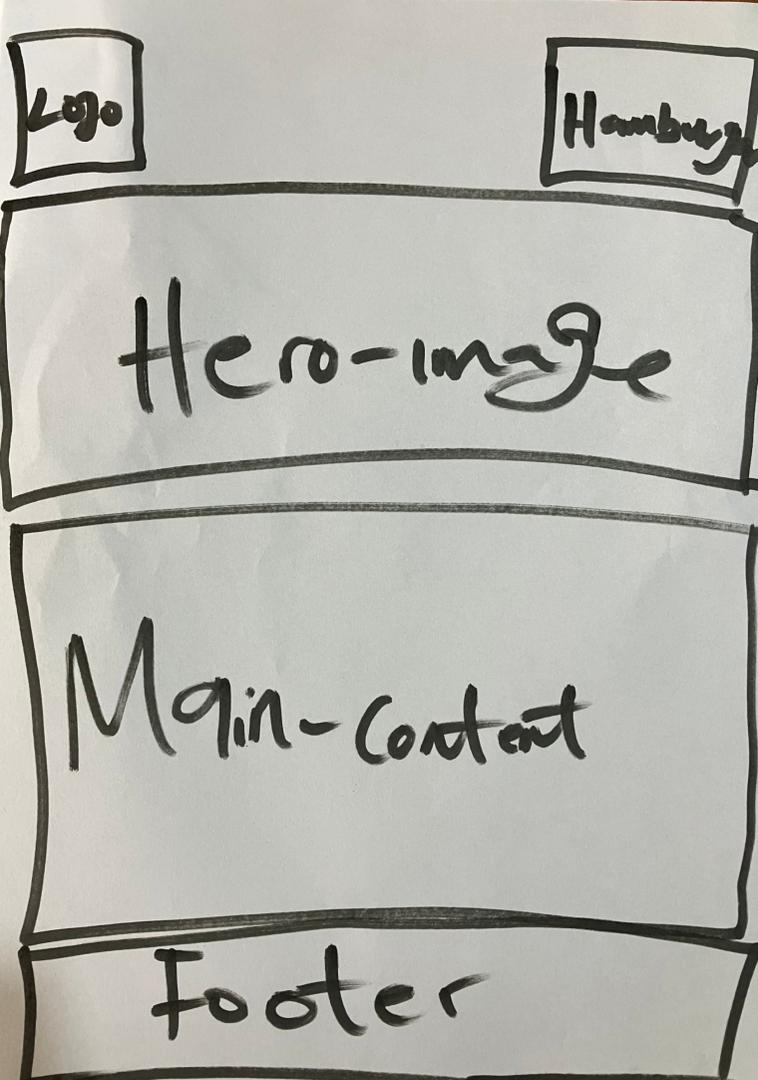 Logo
Hamburger
Hero-image
Main-content
Footer